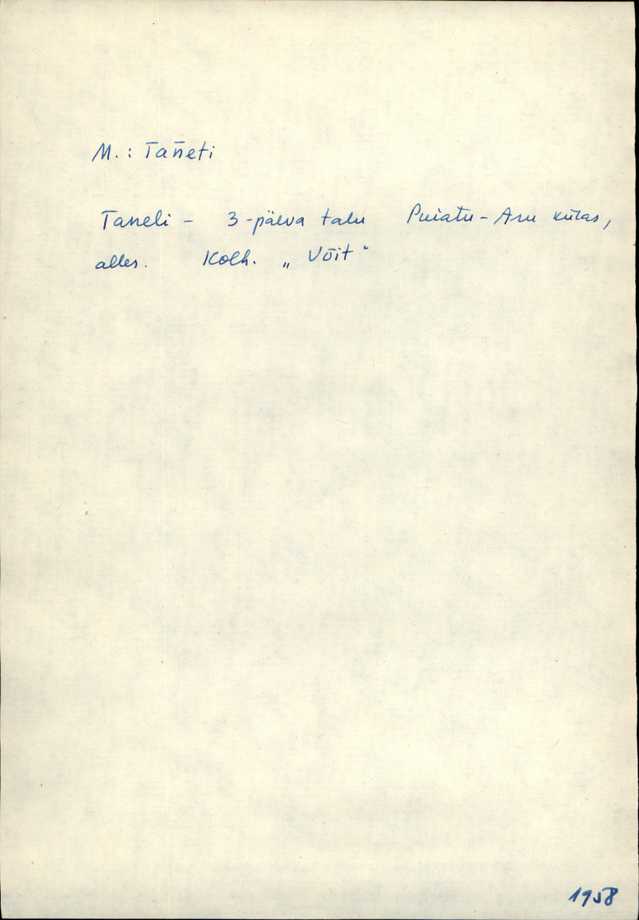 M.: Tańeti
Taneli - 3-päeva talu Puiatu-Aru külas,
alles. Kolh. „Võit"
1958